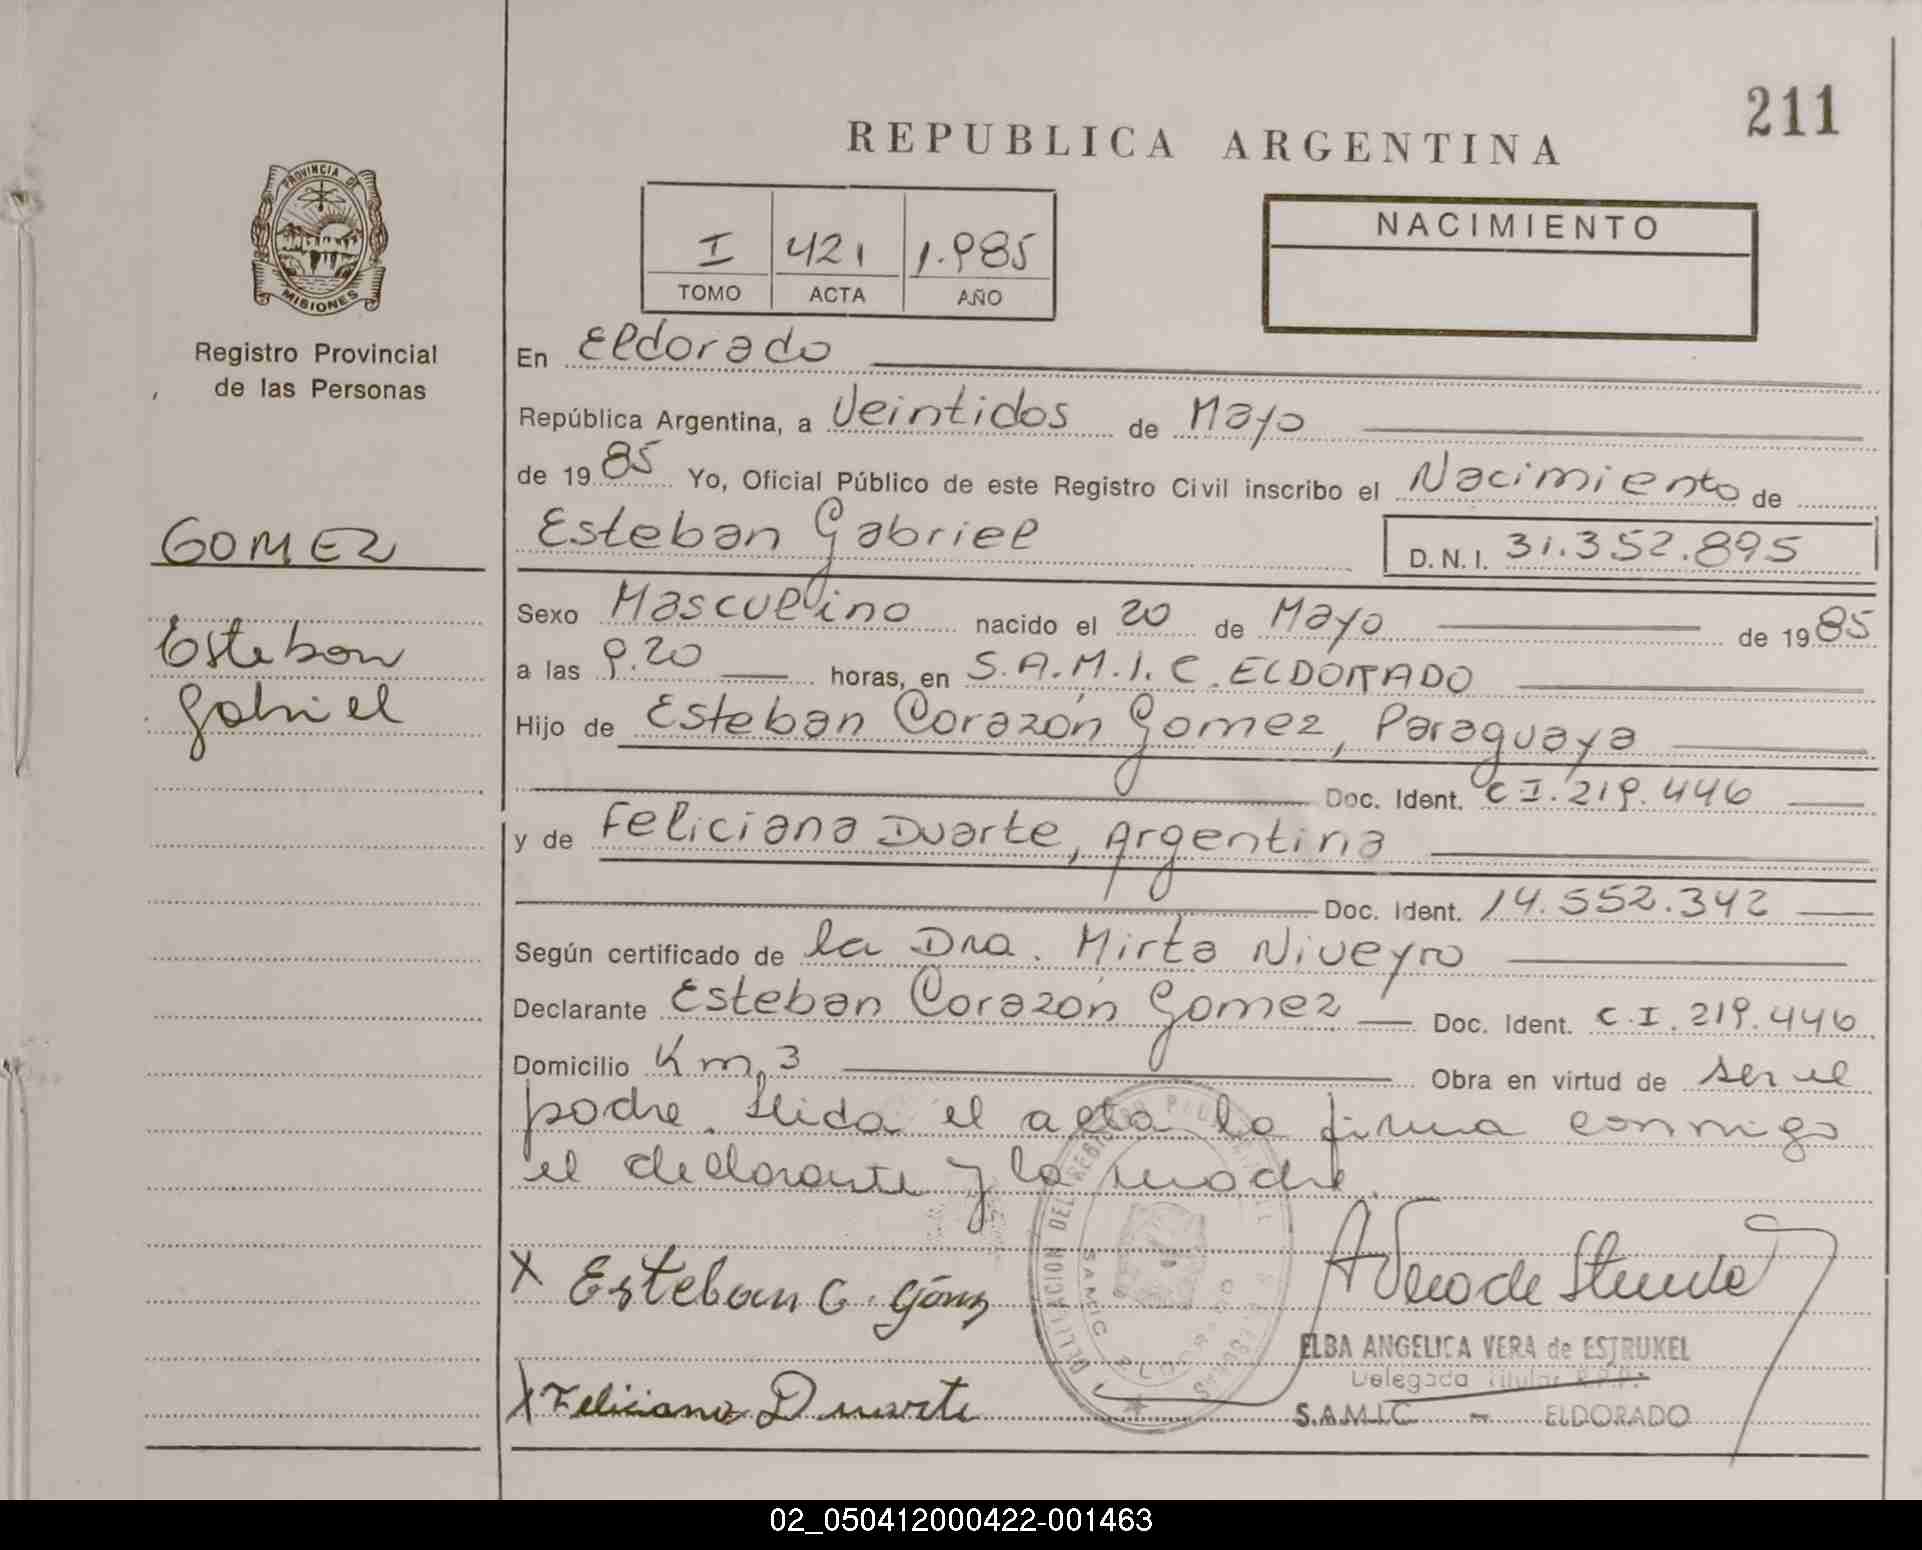 211
REPUBLICA ARGENTINA
PROVINCIA DE
MISIONES
Registro Provincial
de las Personas
I 421 1.985
TOMO ACTA AÑO
NACIMIENTO
En Eldorado
República Argentina, a Veintidos de Mayo
de 1985 Yo, Oficial Público de este Registro Civil inscribo el Nacimiento de
GOMEZ
Esteban Gabriel D.N.I. 31.352.895
Sexo Masculino nacido el 20 de Mayo de 1985
Esteban
Gabriel
a las 9.20 horas, en S.A.M.I.C. ELDORADO
Hijo de Esteban Corazón Gomez, Paraguaya
Doc. Ident. C.I. 219.446
y de Feliciana Duarte, Argentina
Doc. Ident. 14.552.342
Según certificado de la Dra. Mirta Niveyro
Declarante Esteban Corazón Gomez Doc. Ident. C.I. 219.446
Domicilio Km. 3 Obra en virtud de ser el
padre. Leida el acta la firma conmigo
el declarante y la madre.
X Esteban C. Gómez
X Feliciana Duarte
SAMIC ELDORADO
ELBA ANGELICA VERA de ESTRUKEL
Delegada Titular R.P.P.
S.A.M.I.C. - ELDORADO
02_050412000422-001463